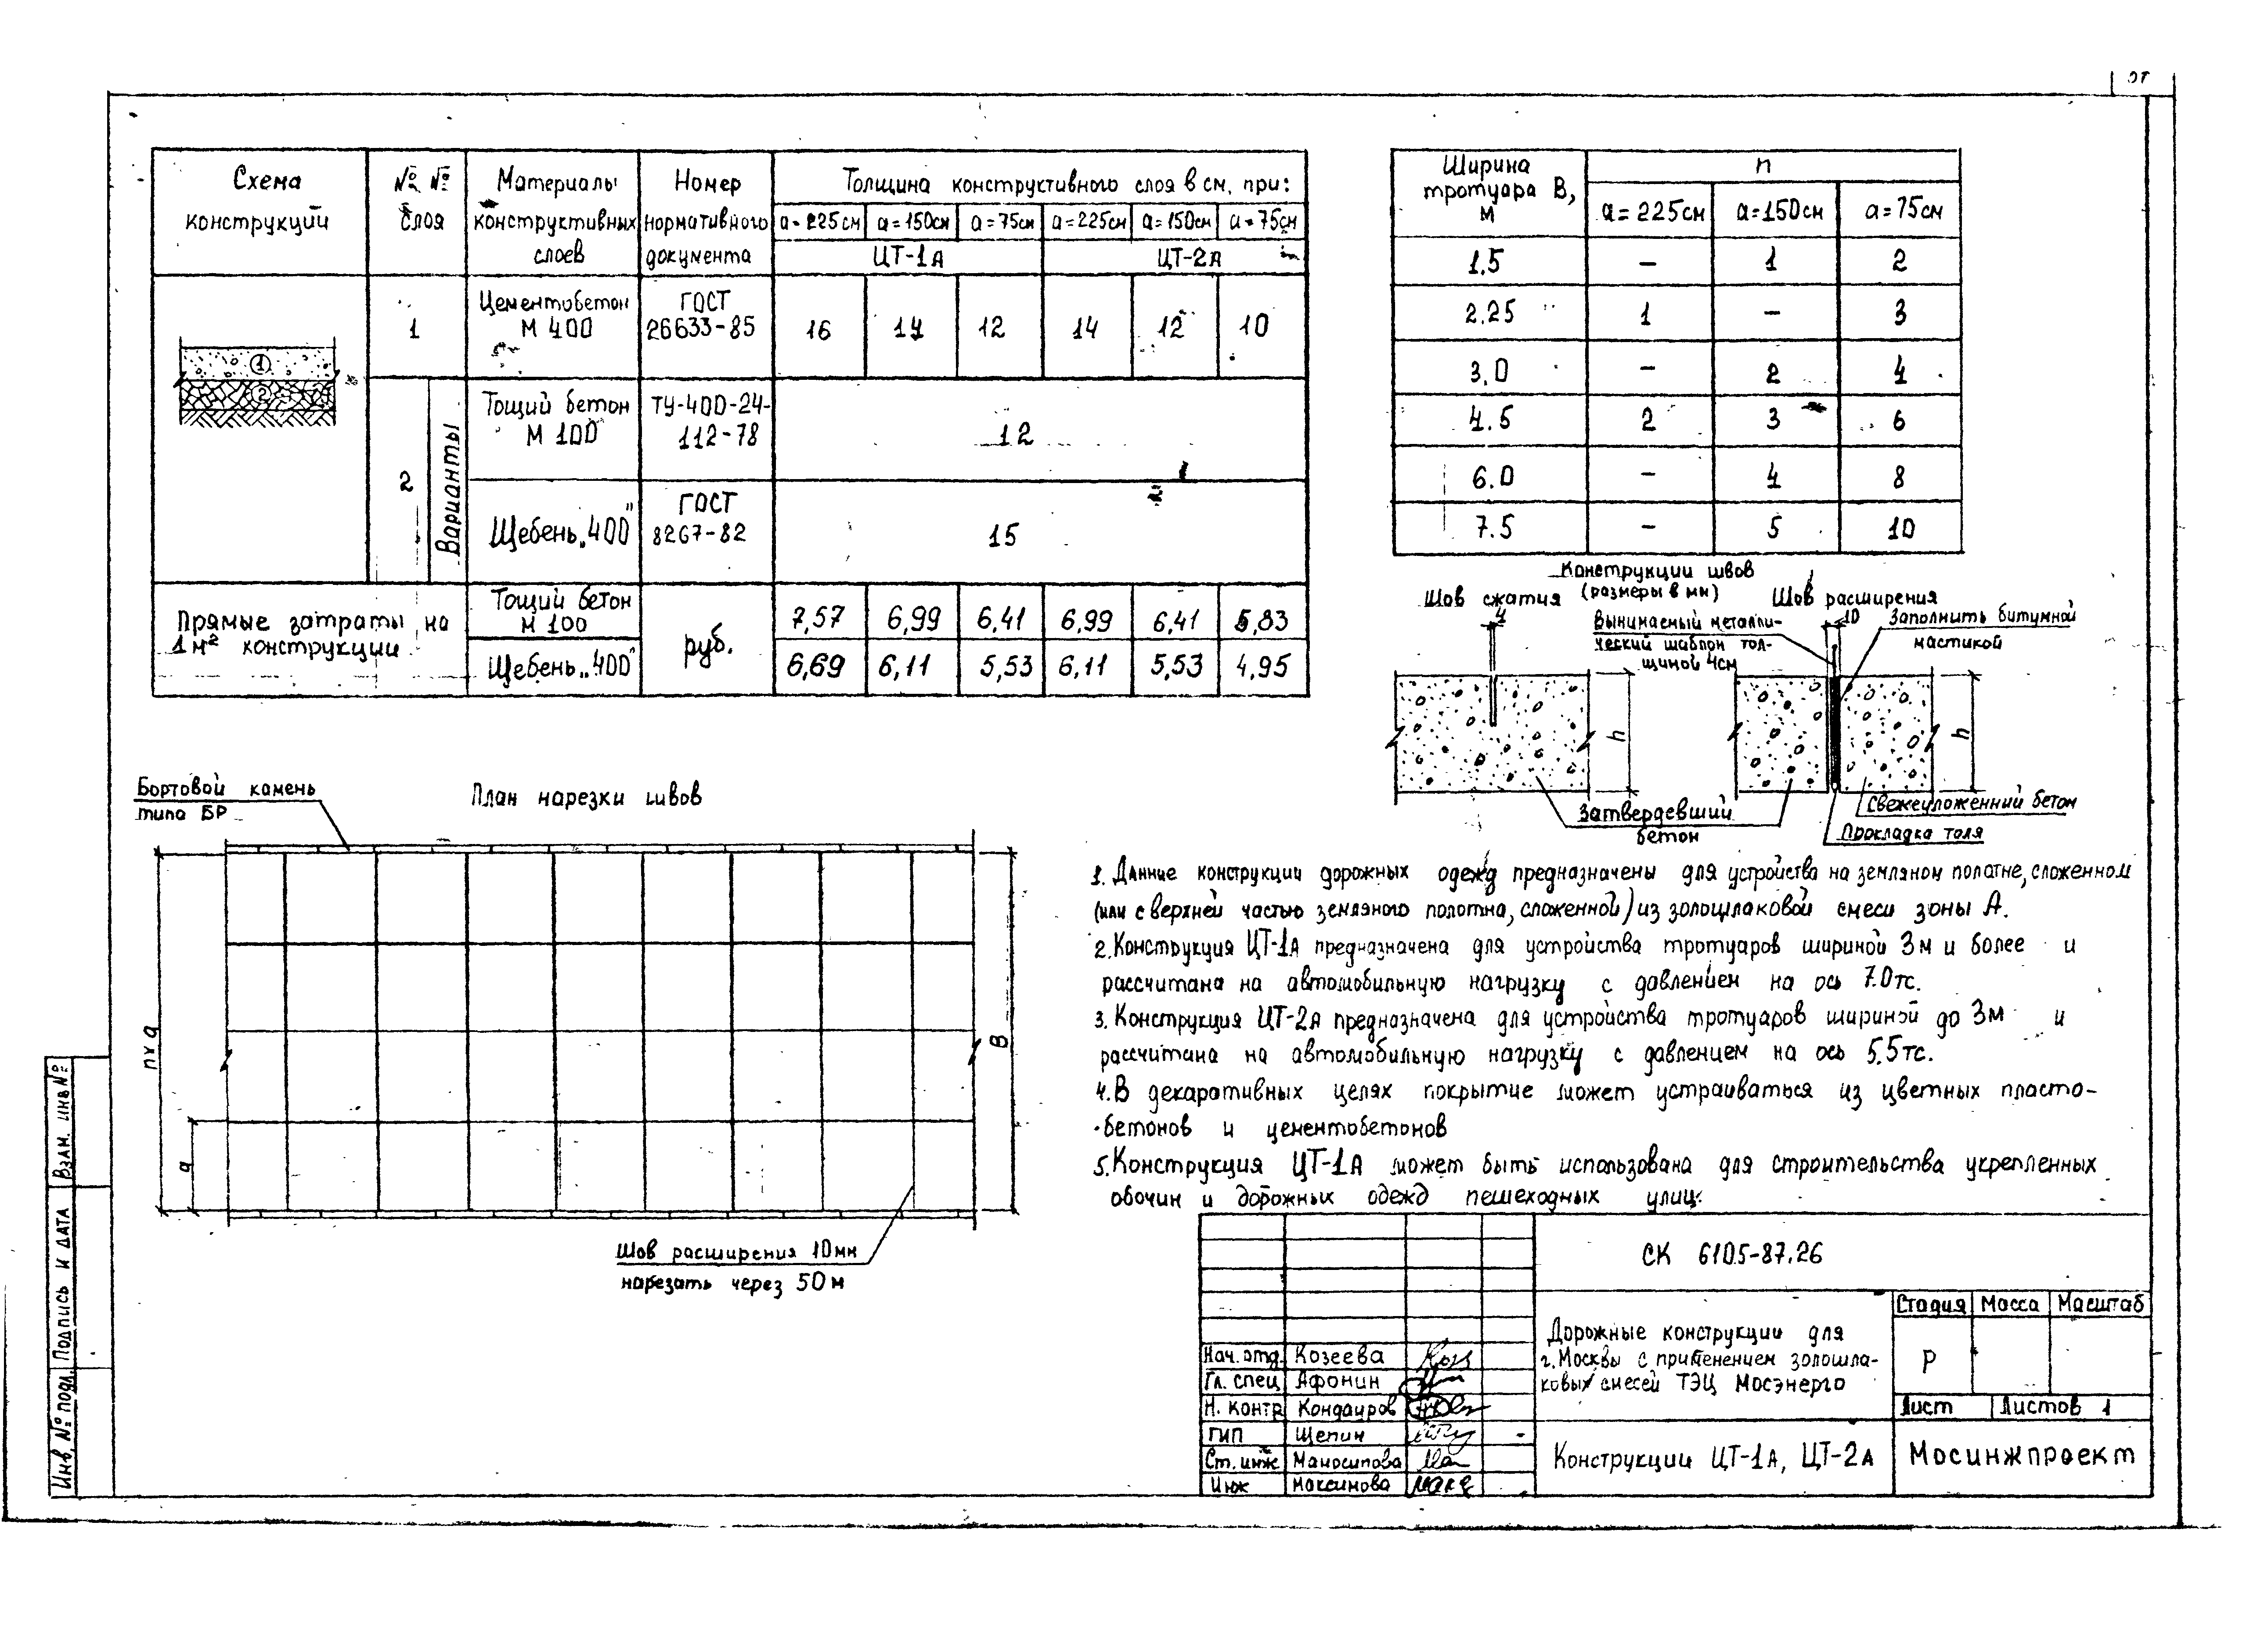 Схема конструкций | №№ слоя | Материалы конструктивных слоев | Номер нормативного документа | Толщина конструктивного слоя в см, при:
а=225см | а=150см | а=75см | а=225см | а=150см | а=75см
ЦТ-1А | ЦТ-2А
1 | Цементобетон М 400 | ГОСТ 26633-85 | 16 | 14 | 12 | 14 | 12 | 10
2 | Варианты | Тощий бетон М 100 | ТУ-400-24-112-78 | 12
Щебень „400" | ГОСТ 8267-82 | 15
Прямые затраты на 1м² конструкции | Тощий бетон М 100 | руб. | 7,57 | 6,99 | 6,41 | 6,99 | 6,41 | 5,83
Щебень „400" | 6,69 | 6,11 | 5,53 | 6,11 | 5,53 | 4,95
1
2
Ширина тротуара В, м | п
а=225см | а=150см | а=75см
1.5 | – | 1 | 2
2.25 | 1 | – | 3
3.0 | – | 2 | 4
4.5 | 2 | 3 | 6
6.0 | – | 4 | 8
7.5 | – | 5 | 10
Конструкции швов
(размеры в мм)
Шов сжатия
4
Шов расширения
10
Вынимаемый металли-
ческий шаблон тол-
щиной 4см
Заполнить битумной
мастикой
h
h
Затвердевший
бетон
Свежеуложенний бетон
Прокладка толя
План нарезки швов
Бортовой камень
типа БР
п х а
а
В
Шов расширения 10мм
нарезать через 50м
1. Данные конструкции дорожных одежд предназначены для устройства на земляном полатне, сложенном
(или с верхней частью земляного полотна, сложенной) из золошлаковой смеси зоны А.
2. Конструкция ЦТ-1А предназначена для устройства тротуаров шириной 3м и более и
рассчитана на автомобильную нагрузку с давлением на ось 7.0тс.
3. Конструкция ЦТ-2А предназначена для устройства тротуаров шириной до 3м и
рассчитана на автомобильную нагрузку с давлением на ось 5.5тс.
4. В декаративных целях покрытие может устраиваться из цветных пласто-
бетонов и цементобетонов
5. Конструкция ЦТ-1А может быть использована для строительства укрепленных
обочин и дорожных одежд пешеходных улиц.
СК 6105-87.26
Дорожные конструкции для
г. Москвы с применением золошла-
ковых смесей ТЭЦ Мосэнерго
Стадия | Масса | Масштаб
Р
Лист | Листов 1
Конструкции ЦТ-1А, ЦТ-2А
Мосинжпроект
Нач. отд. | Козеева
Гл. спец | Афонин
Н. контр | Кондауров
ГИП | Щепин
Ст. инж | Маносипова
Инж | Максимова
Взам. инв №
Подпись и дата
Инв. № подл.